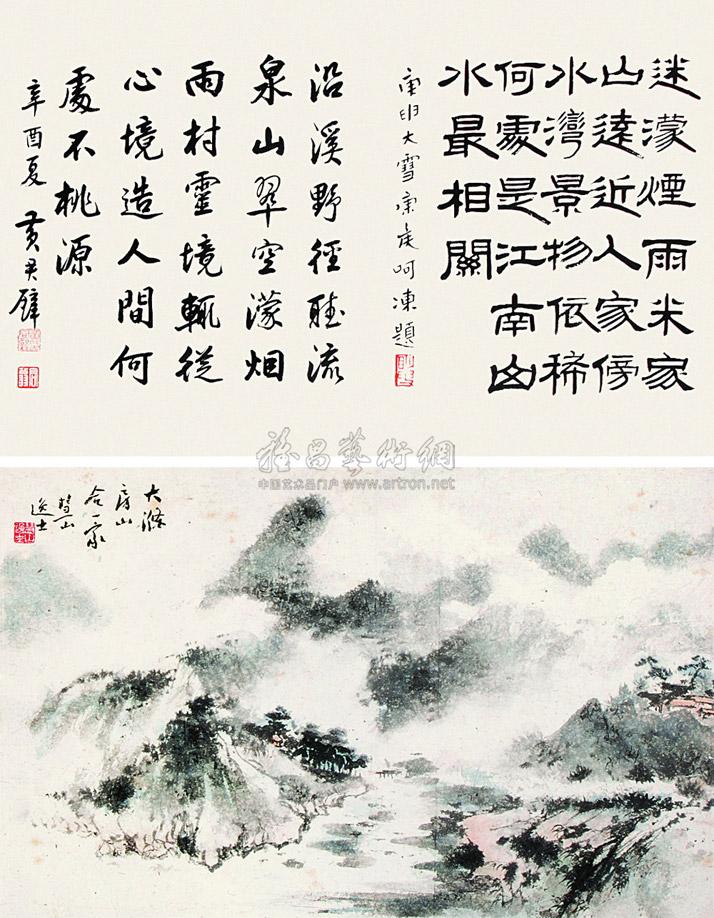 迷濛煙雨米家
山遠近人家傍
水灣景物依稀
何處是江南山
水最相關
庚申大雪呵凍題
沿溪野徑聽流
泉山翠空濛烟
雨村靈境輒從
心境造人間何
處不桃源
辛酉夏 黃君璧
雅昌藝術網
中国艺术品门户 www.artron.net
大滌
房山
合一家
山
逸士